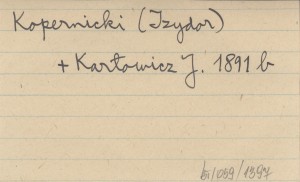 Kopernicki (Izydor)
+ Karłowicz J. 1891 b
bi/099/1997